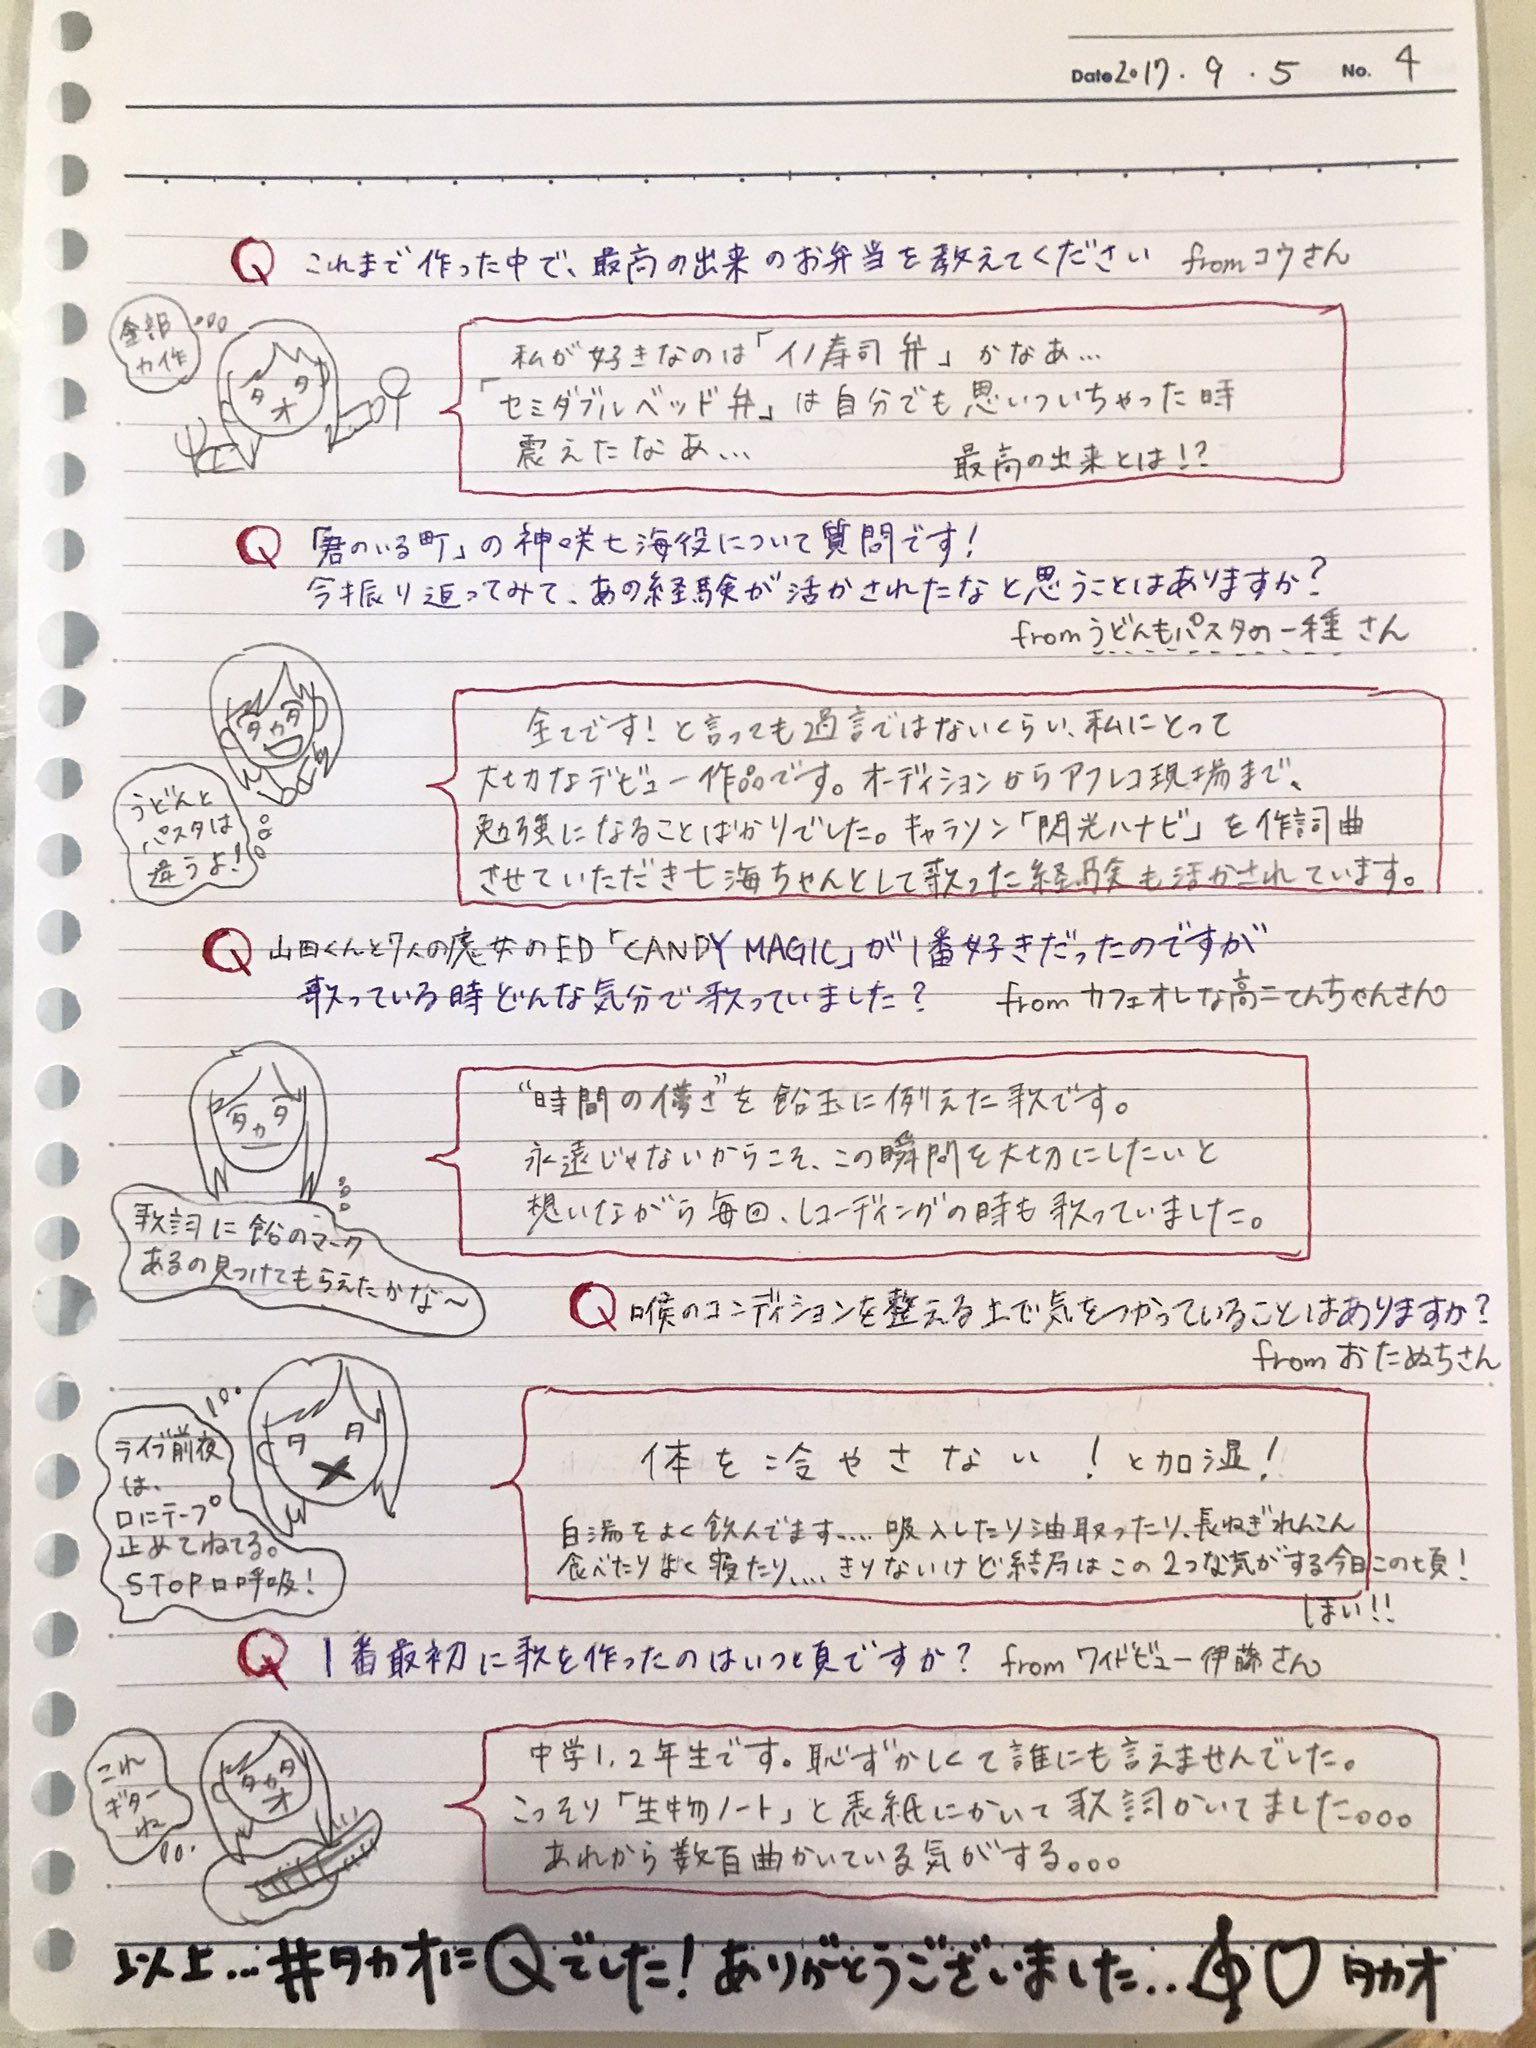 Date 2017.9.5 No. 4
Q これまで作った中で、最高の出来のお弁当を教えてください from コウさん
全部
力作
タオタ
私が好きなのは「イノ寿司弁」かなあ…
「セミダブルベッド弁」は自分でも思いついちゃった時
震えたなあ… 最高の出来とは!?
Q 「君のいる町」の神咲七海役について質問です!
今振り返ってみて、あの経験が活かされたなと思うことはありますか?
from うどんもパスタの一種さん
タカタ
うどんと
パスタは
違うよ!
全てです!と言っても過言ではないくらい、私にとって
大切なデビュー作品です。オーディションからアフレコ現場まで、
勉強になることばかりでした。キャラソン「閃光ハナビ」を作詞曲
させていただき七海ちゃんとして歌った経験も活かされています。
Q 山田くんと7人の魔女のED「CANDY MAGIC」が1番好きだったのですが
歌っている時どんな気分で歌っていました? from カフェオレな高二てんちゃんさん
タカタ
歌詞に飴のマーク
あるの見つけてもらえたかな〜
"時間の儚さ"を飴玉に例えた歌です。
永遠じゃないからこそ、この瞬間を大切にしたいと
想いながら毎回、レコーディングの時も歌っていました。
Q 喉のコンディションを整える上で気をつかっていることはありますか?
from おたぬちさん
タタ
ライブ前夜
は、
口にテープ
止めてねてる。
STOP口呼吸!
体を冷やさない!と加湿!
白湯をよく飲んでます....吸入したり油取ったり、長ねぎれんこん
食べたりよく寝たり、...きりないけど結局はこの2つな気がする今日この頃!
はい!!
Q 1番最初に歌を作ったのはいつ頃ですか? from ワイドビュー伊藤さん
タカタオ
これ
ギター
ね
中学1,2年生です。恥ずかしくて誰にも言えませんでした。
こっそり「生物ノート」と表紙にかいて歌詞かいてました。。。
あれから数百曲かいている気がする。。。
以上…#タカオにQでした!ありがとうございました…♡タカオ